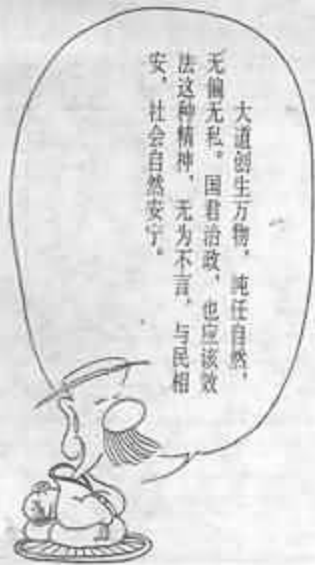 大道创生万物，纯任自然，
无偏无私。国君治政，也应该效
法这种精神，无为不言，与民相
安，社会自然安宁。